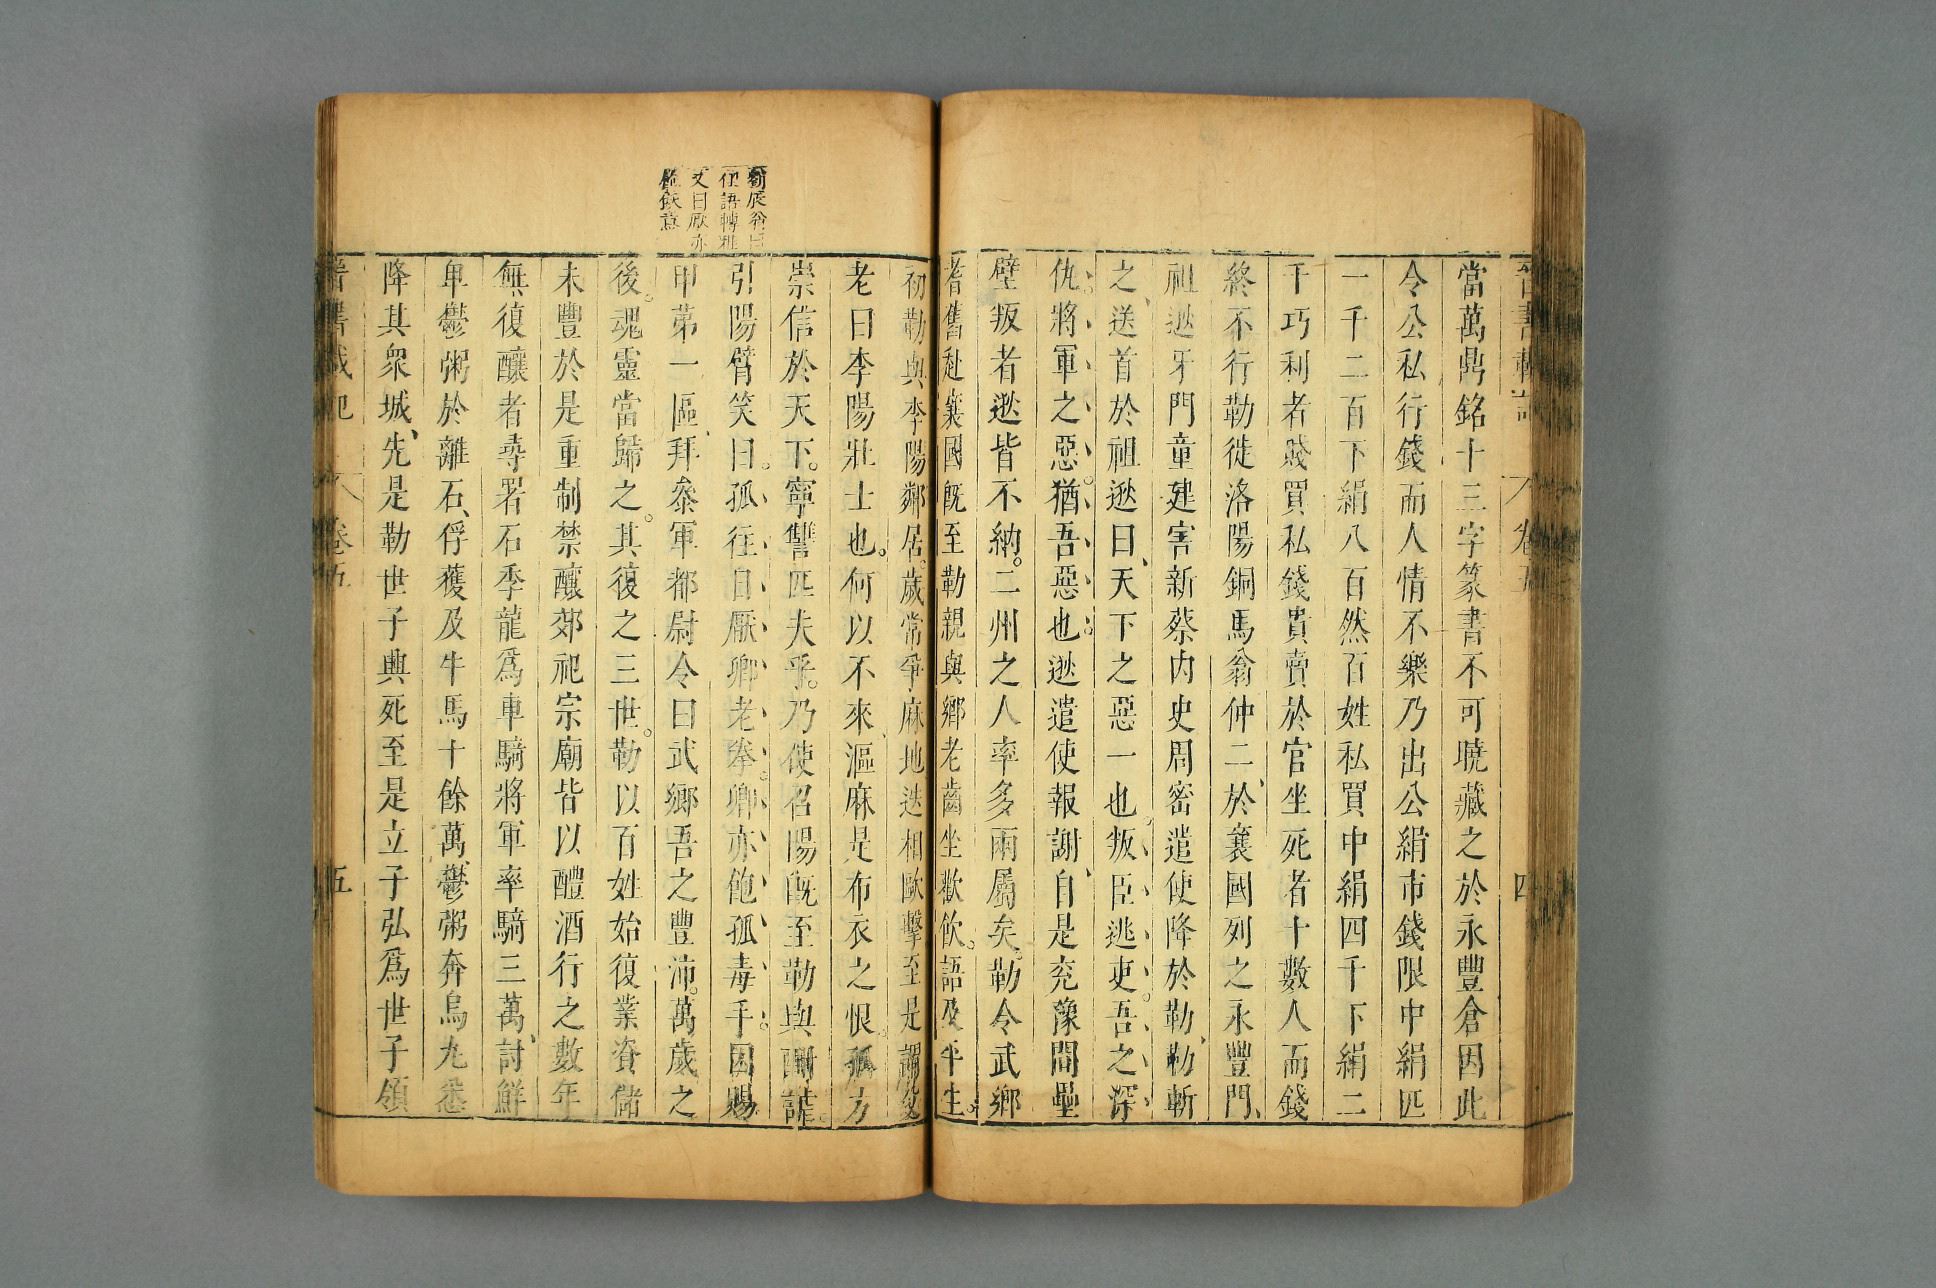 當萬鼎銘十三字篆書不可曉藏之於永豐倉因此
令公私行錢而人情不樂乃出公絹市錢限中絹匹
一千二百下絹八百然百姓私買中絹四千下絹二
千巧利者賤買私錢貴賣於官坐死者十數人而錢
終不行勒徙洛陽銅馬翁仲二、於襄國列之永豐門、
祖逖牙門童建害新蔡內史周密遣使降於勒、勒斬
之、送首於祖逖曰、天下之惡一也。叛臣逃吏。吾之深
仇。將軍之惡。猶吾惡也。逖遣使報謝、自是兗豫間壘
壁叛者逖皆不納。二州之人率多兩屬矣。勒令武鄉
耆舊赴襄國既至勒親與鄉老齒坐歡飲。語及平生。
初勒與李陽鄰居。歲常爭麻地迭相歐擊至是謂父
老曰李陽壯士也。何以不來、漚麻是布衣之恨。孤方
崇信於天下。寧讐匹夫乎。乃使召陽既至勒與酣謔。
引陽臂笑曰。孤往日厭卿老拳。卿亦飽孤毒手。因賜
甲第一區、拜叅軍都尉令曰武鄉吾之豐沛。萬歲之
後。魂靈當歸之。其復之三世。勒以百姓始復業資儲
未豐於是重制禁釀郊祀宗廟皆以醴酒行之數年
無復釀者尋署石季龍爲車騎將軍率騎三萬、討鮮
卑鬱粥於離石、俘獲及牛馬十餘萬鬱粥奔烏丸悉
降其衆城、先是勒世子興死至是立子弘爲世子領
卷五
五